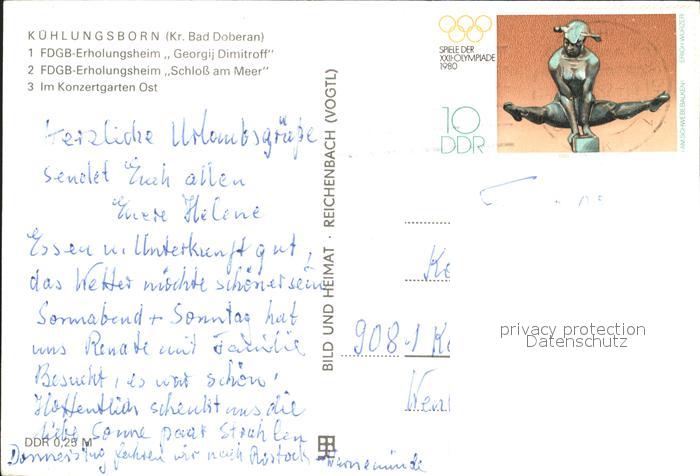 KÜHLUNGSBORN (Kr. Bad Doberan)
1 FDGB-Erholungsheim „Georgij Dimitroff"
2 FDGB-Erholungsheim „Schloß am Meer"
3 Im Konzertgarten Ost
Herzliche Urlaubsgrüße
sendet Euch allen
Eure Helene
Essen u. Unterkunft gut,
das Wetter möchte schöner sein
Sonnabend + Sonntag hat
uns Renate mit Familie
Besucht, es war schön,
Hoffentlich schenkt uns die
liebe Sonne paar Strahlen
Donnerstag fahren wir nach Rostock - Warnemünde
DDR 0,25 M
BILD UND HEIMAT · REICHENBACH (VOGTL)
SPIELE DER
XXII.OLYMPIADE
1980
10
DDR
ERICH WURZER
AM SCHWEBEBALKEN
908-1
privacy protection
Datenschutz